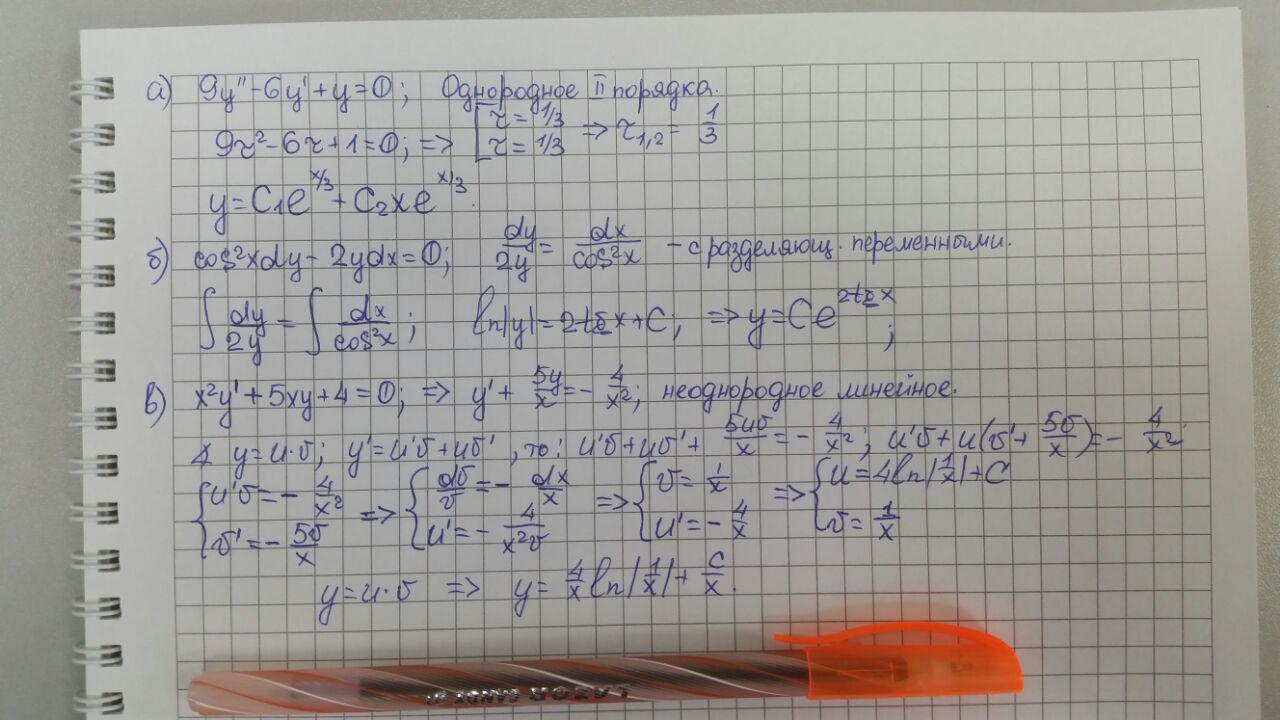 а) 9y'' - 6y' + y = 0; Однородное II порядка.
9τ² - 6τ + 1 = 0; => [τ = 1/3 τ = 1/3 => τ₁,₂ = 1/3
y = C₁e^(x/3) + C₂xe^(x/3).
б) cos²xdy - 2ydx = 0; dy/2y = dx/cos²x - с разделяющ. переменными.
∫ dy/2y = ∫ dx/cos²x; ln|y| = 2tgx + C; => y = Ce^(2tgx);
в) x²y' + 5xy + 4 = 0; => y' + 5y/x = - 4/x²; неоднородное линейное.
y = u·v; y' = u'v + uv', то: u'v + uv' + 5uv/x = - 4/x²; u'v + u(v' + 5v/x) = - 4/x²
{u'v = - 4/x² v' = - 5v/x => {dv/v = - dx/x u' = - 4/x²v => {v = 1/x u' = - 4/x => {u = 4ln|1/x| + C v = 1/x
y = u·v => y = 4/x ln|1/x| + C/x.
LAZOR CANDY